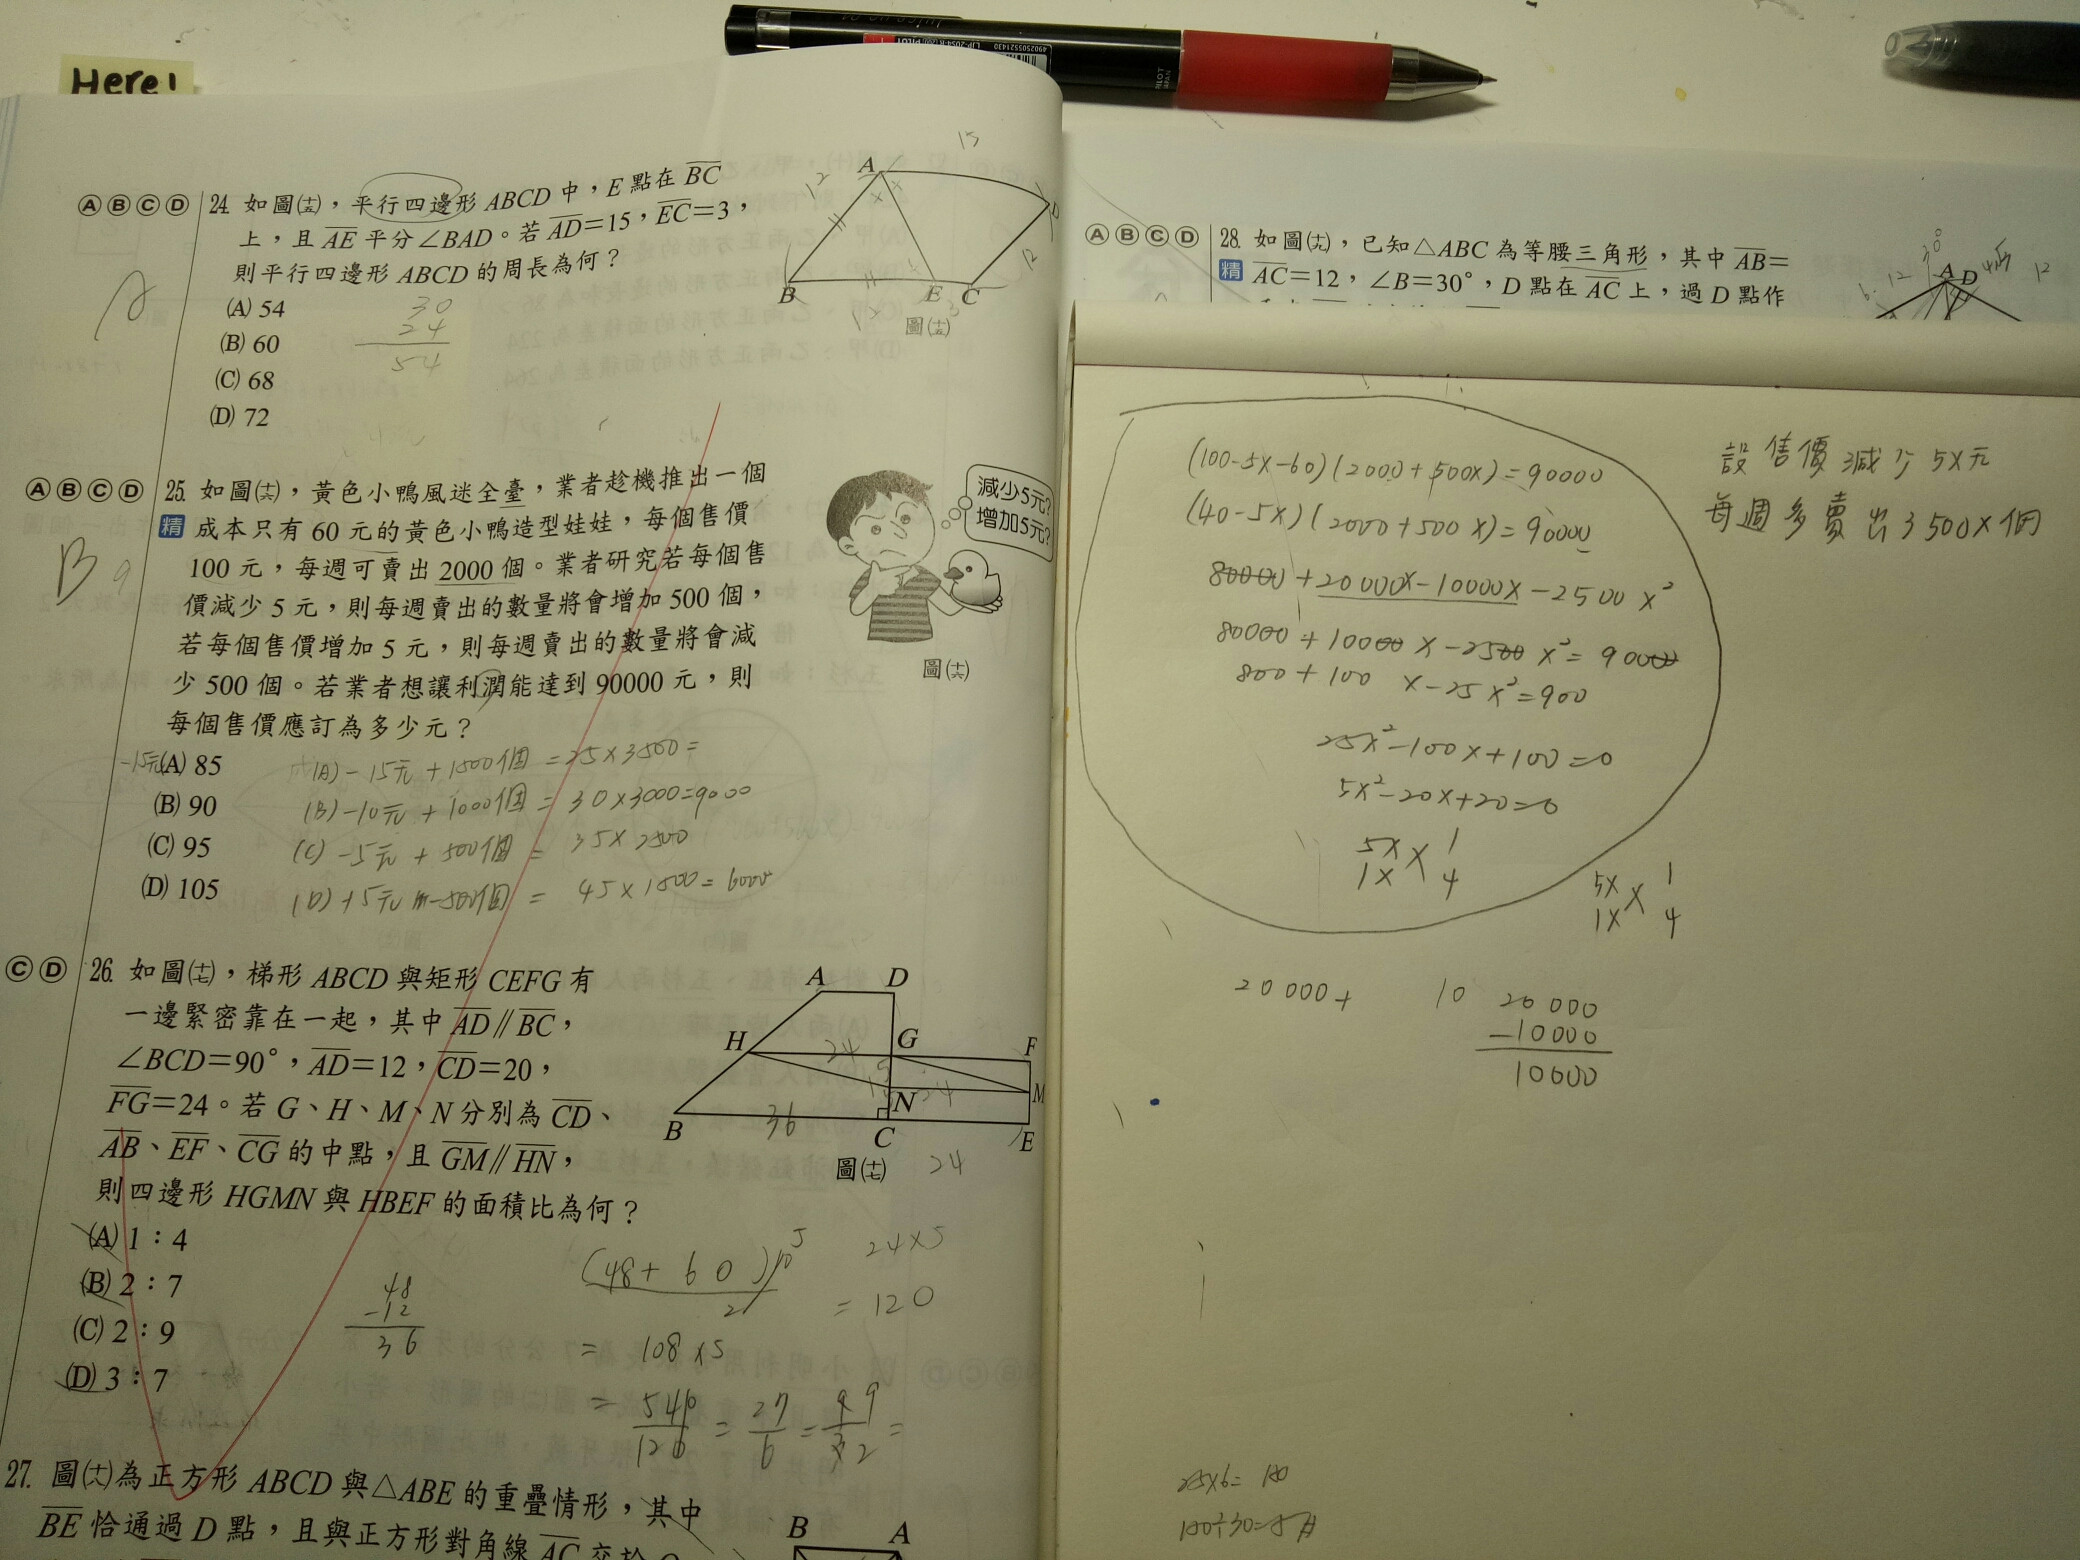 Here!
ⒶⒷⒸⒹ 24. 如圖(十五)，平行四邊形 ABCD 中，E 點在 BC
上，且 AE 平分∠BAD。若 AD＝15，EC＝3，
則平行四邊形 ABCD 的周長為何？
(A) 54
(B) 60
(C) 68
(D) 72
A
30
24
54
15
12
A
D
B
E
C
12
3
圖(十五)
ⒶⒷⒸⒹ 25. 如圖(十六)，黃色小鴨風迷全臺，業者趁機推出一個
精 成本只有 60 元的黃色小鴨造型娃娃，每個售價
100 元，每週可賣出 2000 個。業者研究若每個售
價減少 5 元，則每週賣出的數量將會增加 500 個，
若每個售價增加 5 元，則每週賣出的數量將會減
少 500 個。若業者想讓利潤能達到 90000 元，則
每個售價應訂為多少元？
B
減少5元？
增加5元？
圖(十六)
-15元(A) 85
(B) 90
(C) 95
(D) 105
(A) -15元 +1500個 = 25×3500=
(B) -10元 + 1000個 = 30×3000=9000
(C) -5元 + 500個 = 35×2500
(D) +5元 -500個 = 45×1500=6000
ⒸⒹ 26. 如圖(十七)，梯形 ABCD 與矩形 CEFG 有
一邊緊密靠在一起，其中 AD∥BC，
∠BCD＝90°，AD＝12，CD＝20，
FG＝24。若 G、H、M、N 分別為 CD、
AB、EF、CG 的中點，且 GM∥HN，
則四邊形 HGMN 與 HBEF 的面積比為何？
(A) 1：4
(B) 2：7
(C) 2：9
(D) 3：7
A
D
H
24
G
F
5
24
M
N
B
36
C
E
圖(十七)
24
48
-12
36
(48+60)10 5
2
= 108×5
= 540/120 = 27/6 = 9/2 =
24×5
= 120
27. 圖(十八)為正方形 ABCD 與△ABE 的重疊情形，其中
BE 恰通過 D 點，且與正方形對角線 AC
B
A
ⒶⒷⒸⒹ 28. 如圖(十九)，已知△ABC 為等腰三角形，其中 AB＝
精 AC＝12，∠B＝30°，D 點在 AC 上，過 D 點作
12
A
D
12
(100-5x-60)(2000+500x)=90000
(40-5x)(2000+500x)=90000
80000+20000x-10000x-2500x²
80000+10000x-2500x²=90000
800+100x-25x²=900
25x²-100x+100=0
5x²-20x+20=0
5x 1
1x 4
5x 1
1x 4
設售價減少5x元
每週多賣出500x個
20000+
10
20000
-10000
10000
25×6=